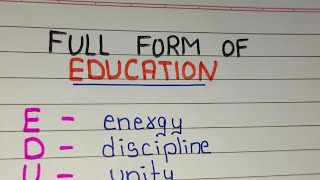 FULL FORM OF
EDUCATION
E - energy
D - discipline
U - unity